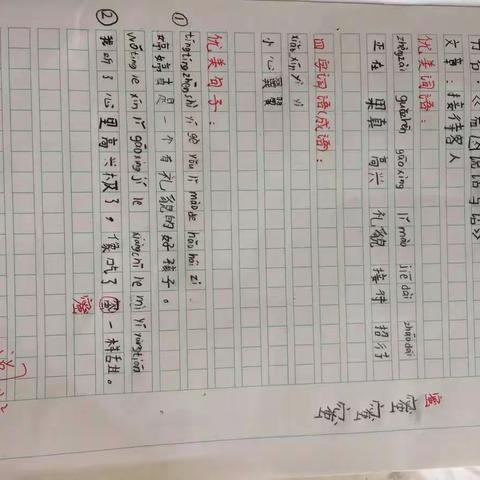 文章：接待客人
优美词语：
zhèngzài guǒzhēn gāoxìng lǐ mào jiē dài zhāodài
正在 果真 高兴 礼貌 接待 招待
四字词语(成语)：
xiǎo xīn yì yì
小心翼翼
优美句子：
① tíngtíngzhēnshì yí gè yǒu lǐ mào de hǎo hái zi
婷婷真是一个有礼貌的好孩子。
② wǒtīng le xīn lǐ gāoxìng jí le xiàngchī le mì yí yàngtián
我听了心里高兴极了，像吃了蜜一样甜。
蜜
蜜 蜜 蜜 蜜